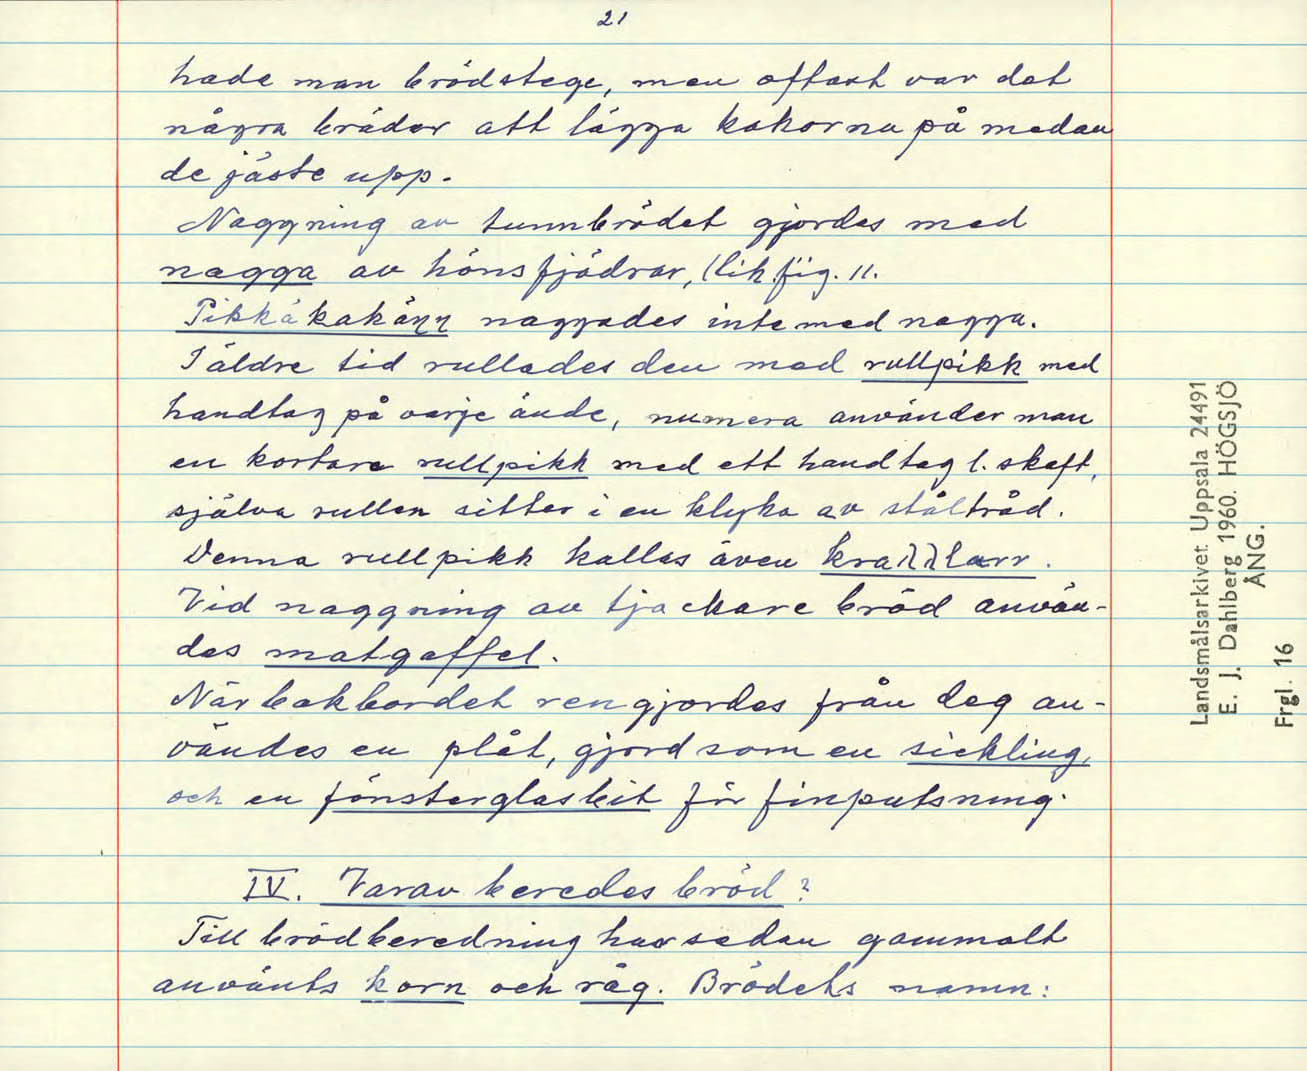 21
hade man brödstege, men oftast var det
några bräder att lägga kakorna på medan
de jäste upp.
Naggning av tunnbrödet gjordes med
nagga av hönsfjädrar, lik fig. 11.
Pikkåkakäŋŋ naggades inte med nagga.
I äldre tid rullades den med rullpikk med
handtag på varje ände, numera använder man
en kortare rullpikk med ett handtag l. skaft,
själva rullen sitter i en klyka av ståltråd.
Denna rullpikk kallas även
Vid naggning av tjackare bröd använ-
des matgaffel.
När bakbordet rengjordes från deg an-
vändes en plåt, gjord som en sickling,
och en fönsterglasbit för finputsning.
IV. Varav beredes bröd?
Till brödberedning har sedan gammalt
använts korn och råg. Brödets namn:
Landsmålsarkivet Uppsala 24491
E. J. Dahlberg 1960. HÖGSJÖ
ÅNG.
Frgl. 16